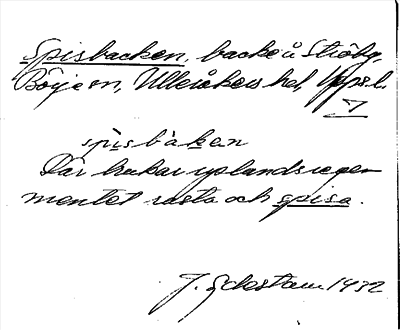 Spisbacken, backe å Ströby,
Börje sn, Ulleråkers hd, Uppl.
spisbàken
Där brukar uplandsregem
mentet rasta och spisa.
J. Sahlström 1932